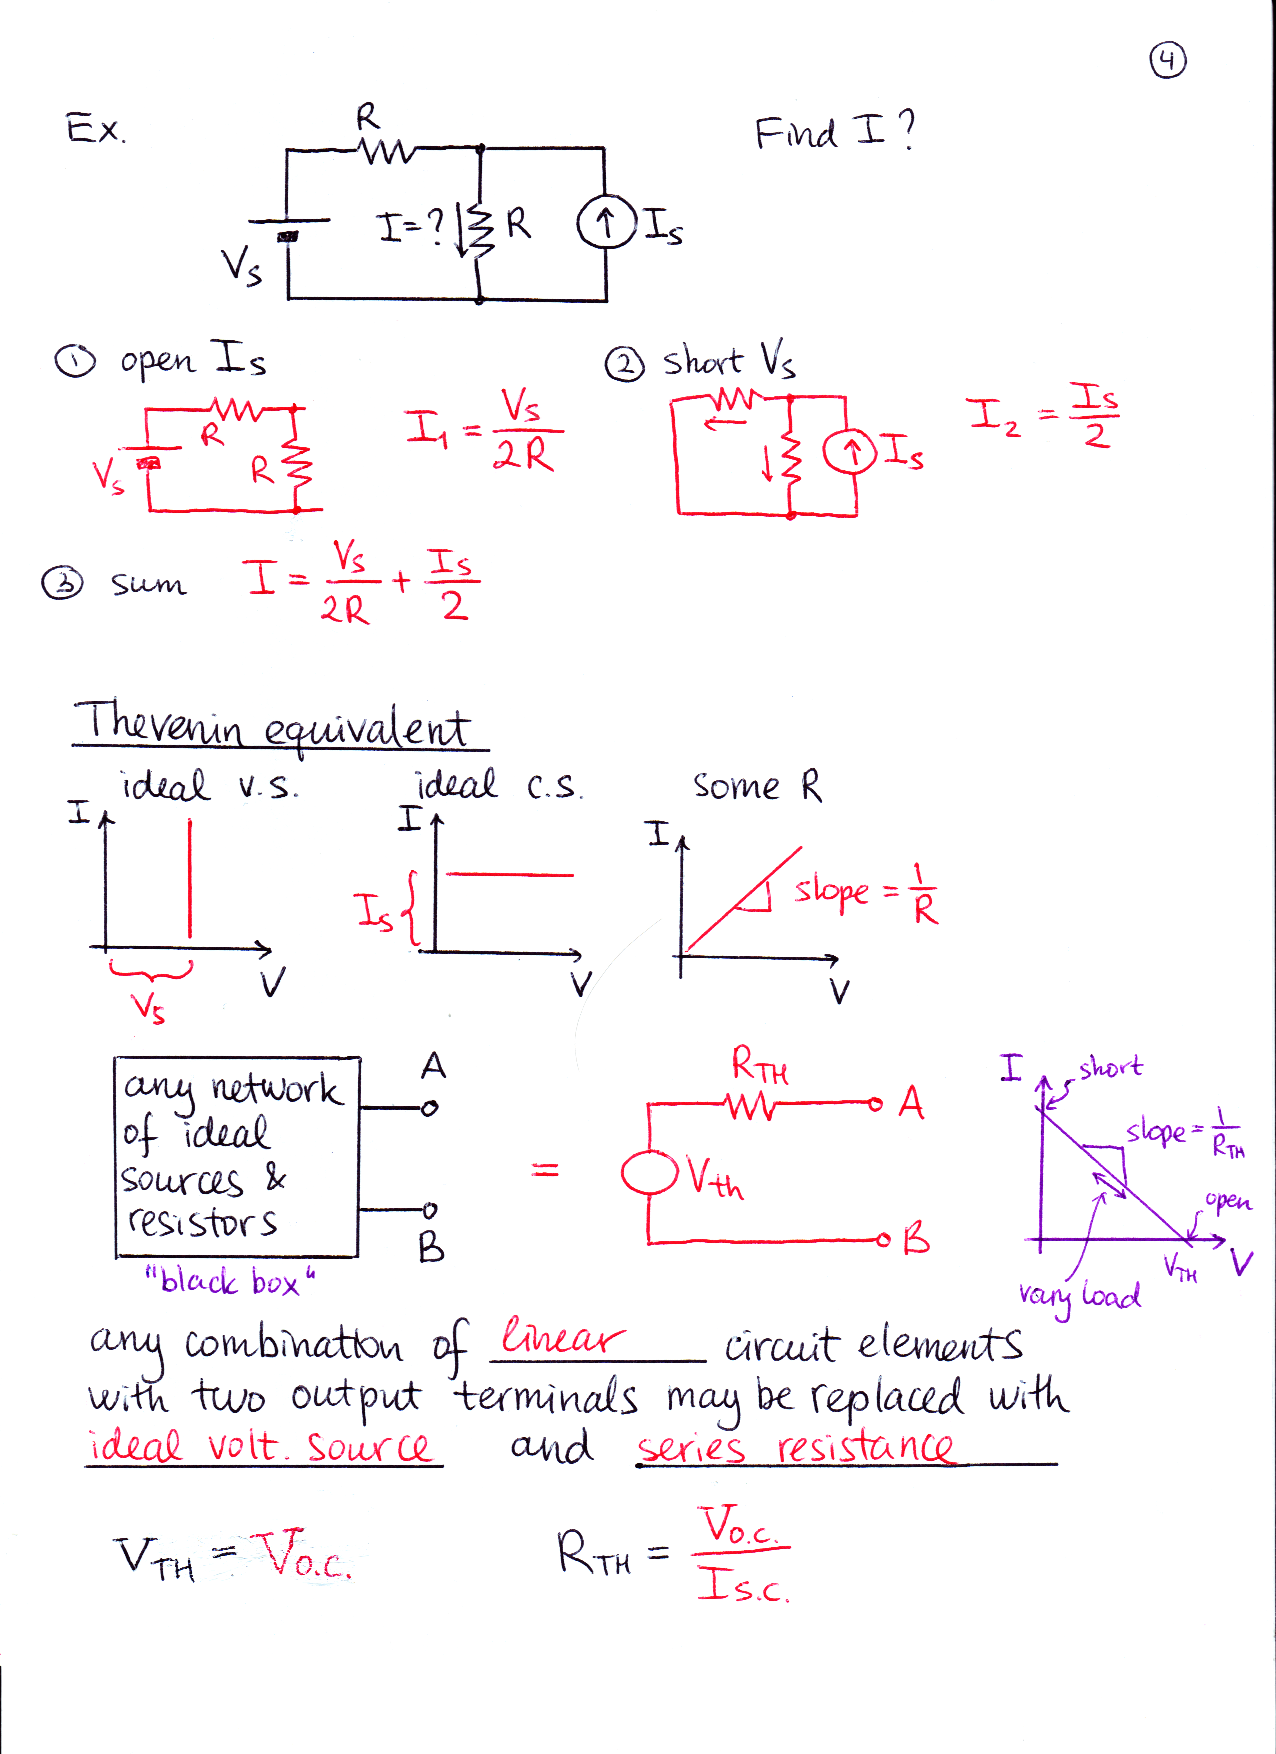 ④
Ex.
Find I?
R
I=? R
Vs
Is
① open Is
R
R
Vs
I₁ = Vs/2R
② short Vs
Is
I₂ = Is/2
③ sum I = Vs/2R + Is/2
Thevenin equivalent
ideal v.s.
I
V
Vs
ideal c.s.
I
Is
V
some R
I
slope = 1/R
V
any network
of ideal
sources &
resistors
"black box"
A
B
=
RTH
Vth
A
B
I
short
slope = 1/RTH
open
VTH
V
vary load
any combination of linear circuit elements
with two output terminals may be replaced with
ideal volt. source and series resistance
VTH = Vo.c.
RTH = Vo.c./Is.c.